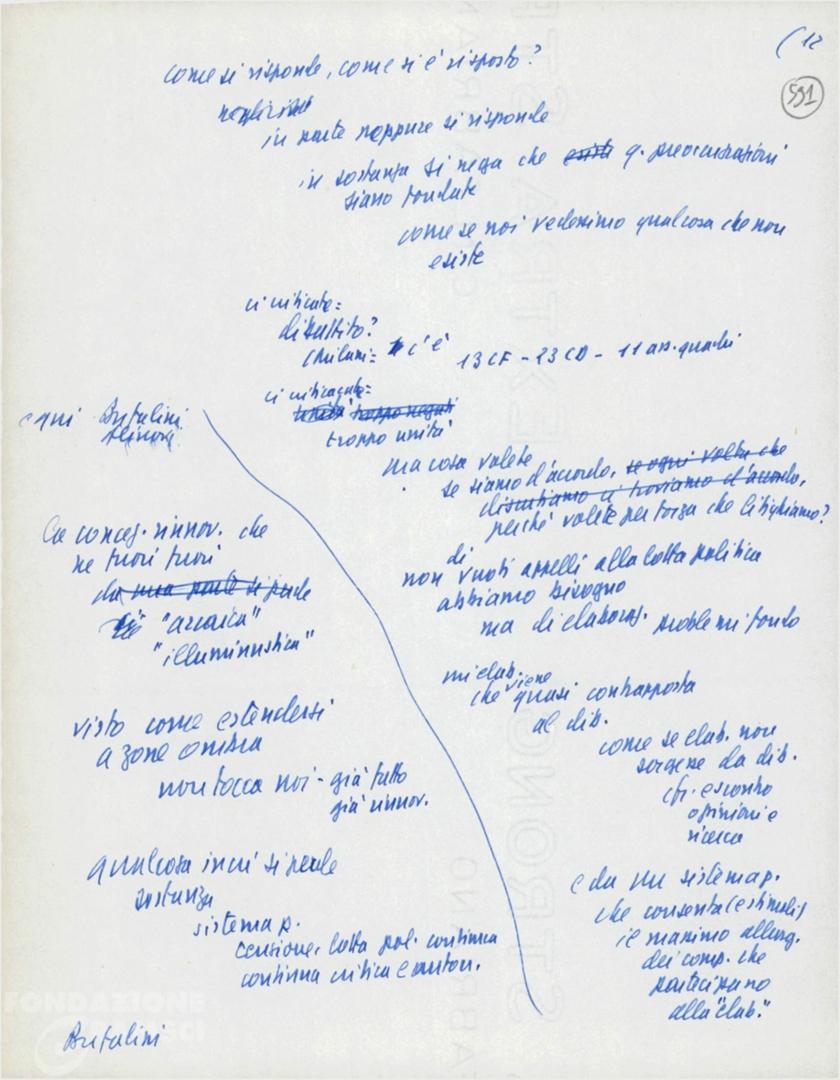 ( 12
591
come si risponde, come si è risposto?
in parte neppure si risponde
in sostanza si nega che esista q. preoccupazioni
siano fondate
come se noi vedessimo qualcosa che non
esiste
ci criticate:
dibattito?
c'è 13 CF - 23 CD - 11 ass. quadri
ci criticavate:
unità troppo
troppo unità
ma cosa volete
se siamo d'accordo, se ogni volta che
discutiamo ci troviamo d'accordo,
perché volete per forza che litighiamo?
di
non vuoti appelli alla lotta politica
abbiamo bisogno
ma di elaboraz. problemi fondo
che viene quasi contrapposta
al dib.
come se elab. non
sorgesse da dib.
opinioni e
ricerca
e da un sistema p.
che consenta (e stimoli)
il massimo allarg.
dei comp. che
partecipano
alla "elab."
Bufalini
Ce concez. rinnov. che
ne fuori
da una parte si perde
"arcaica"
"illuministica"
visto come estendersi
a zone ombra
non tocca noi - già tutto
già rinnov.
qualcosa in cui si perde
sostanza
sistema p.
tensione, lotta pol. continua
continua critica e autocr.
Bufalini
FONDAZIONE